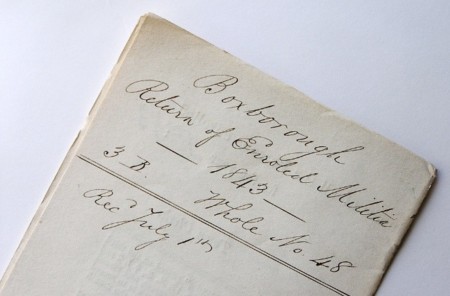 Boxborough
Return of Enroled Militia
— 1843 —
3 B. Whole No. 48
Rec'd July 1th